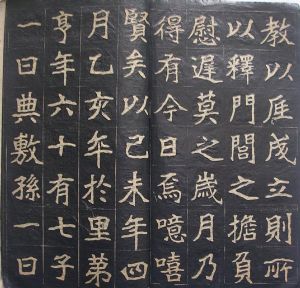 教以厓成立則所
以釋門閭之擔負
慰遲莫之歲月乃
得有今日焉噫嘻
賢矣以己未年四
月乙亥卒於里第
亨年六十有七子
一曰典敷孫一曰